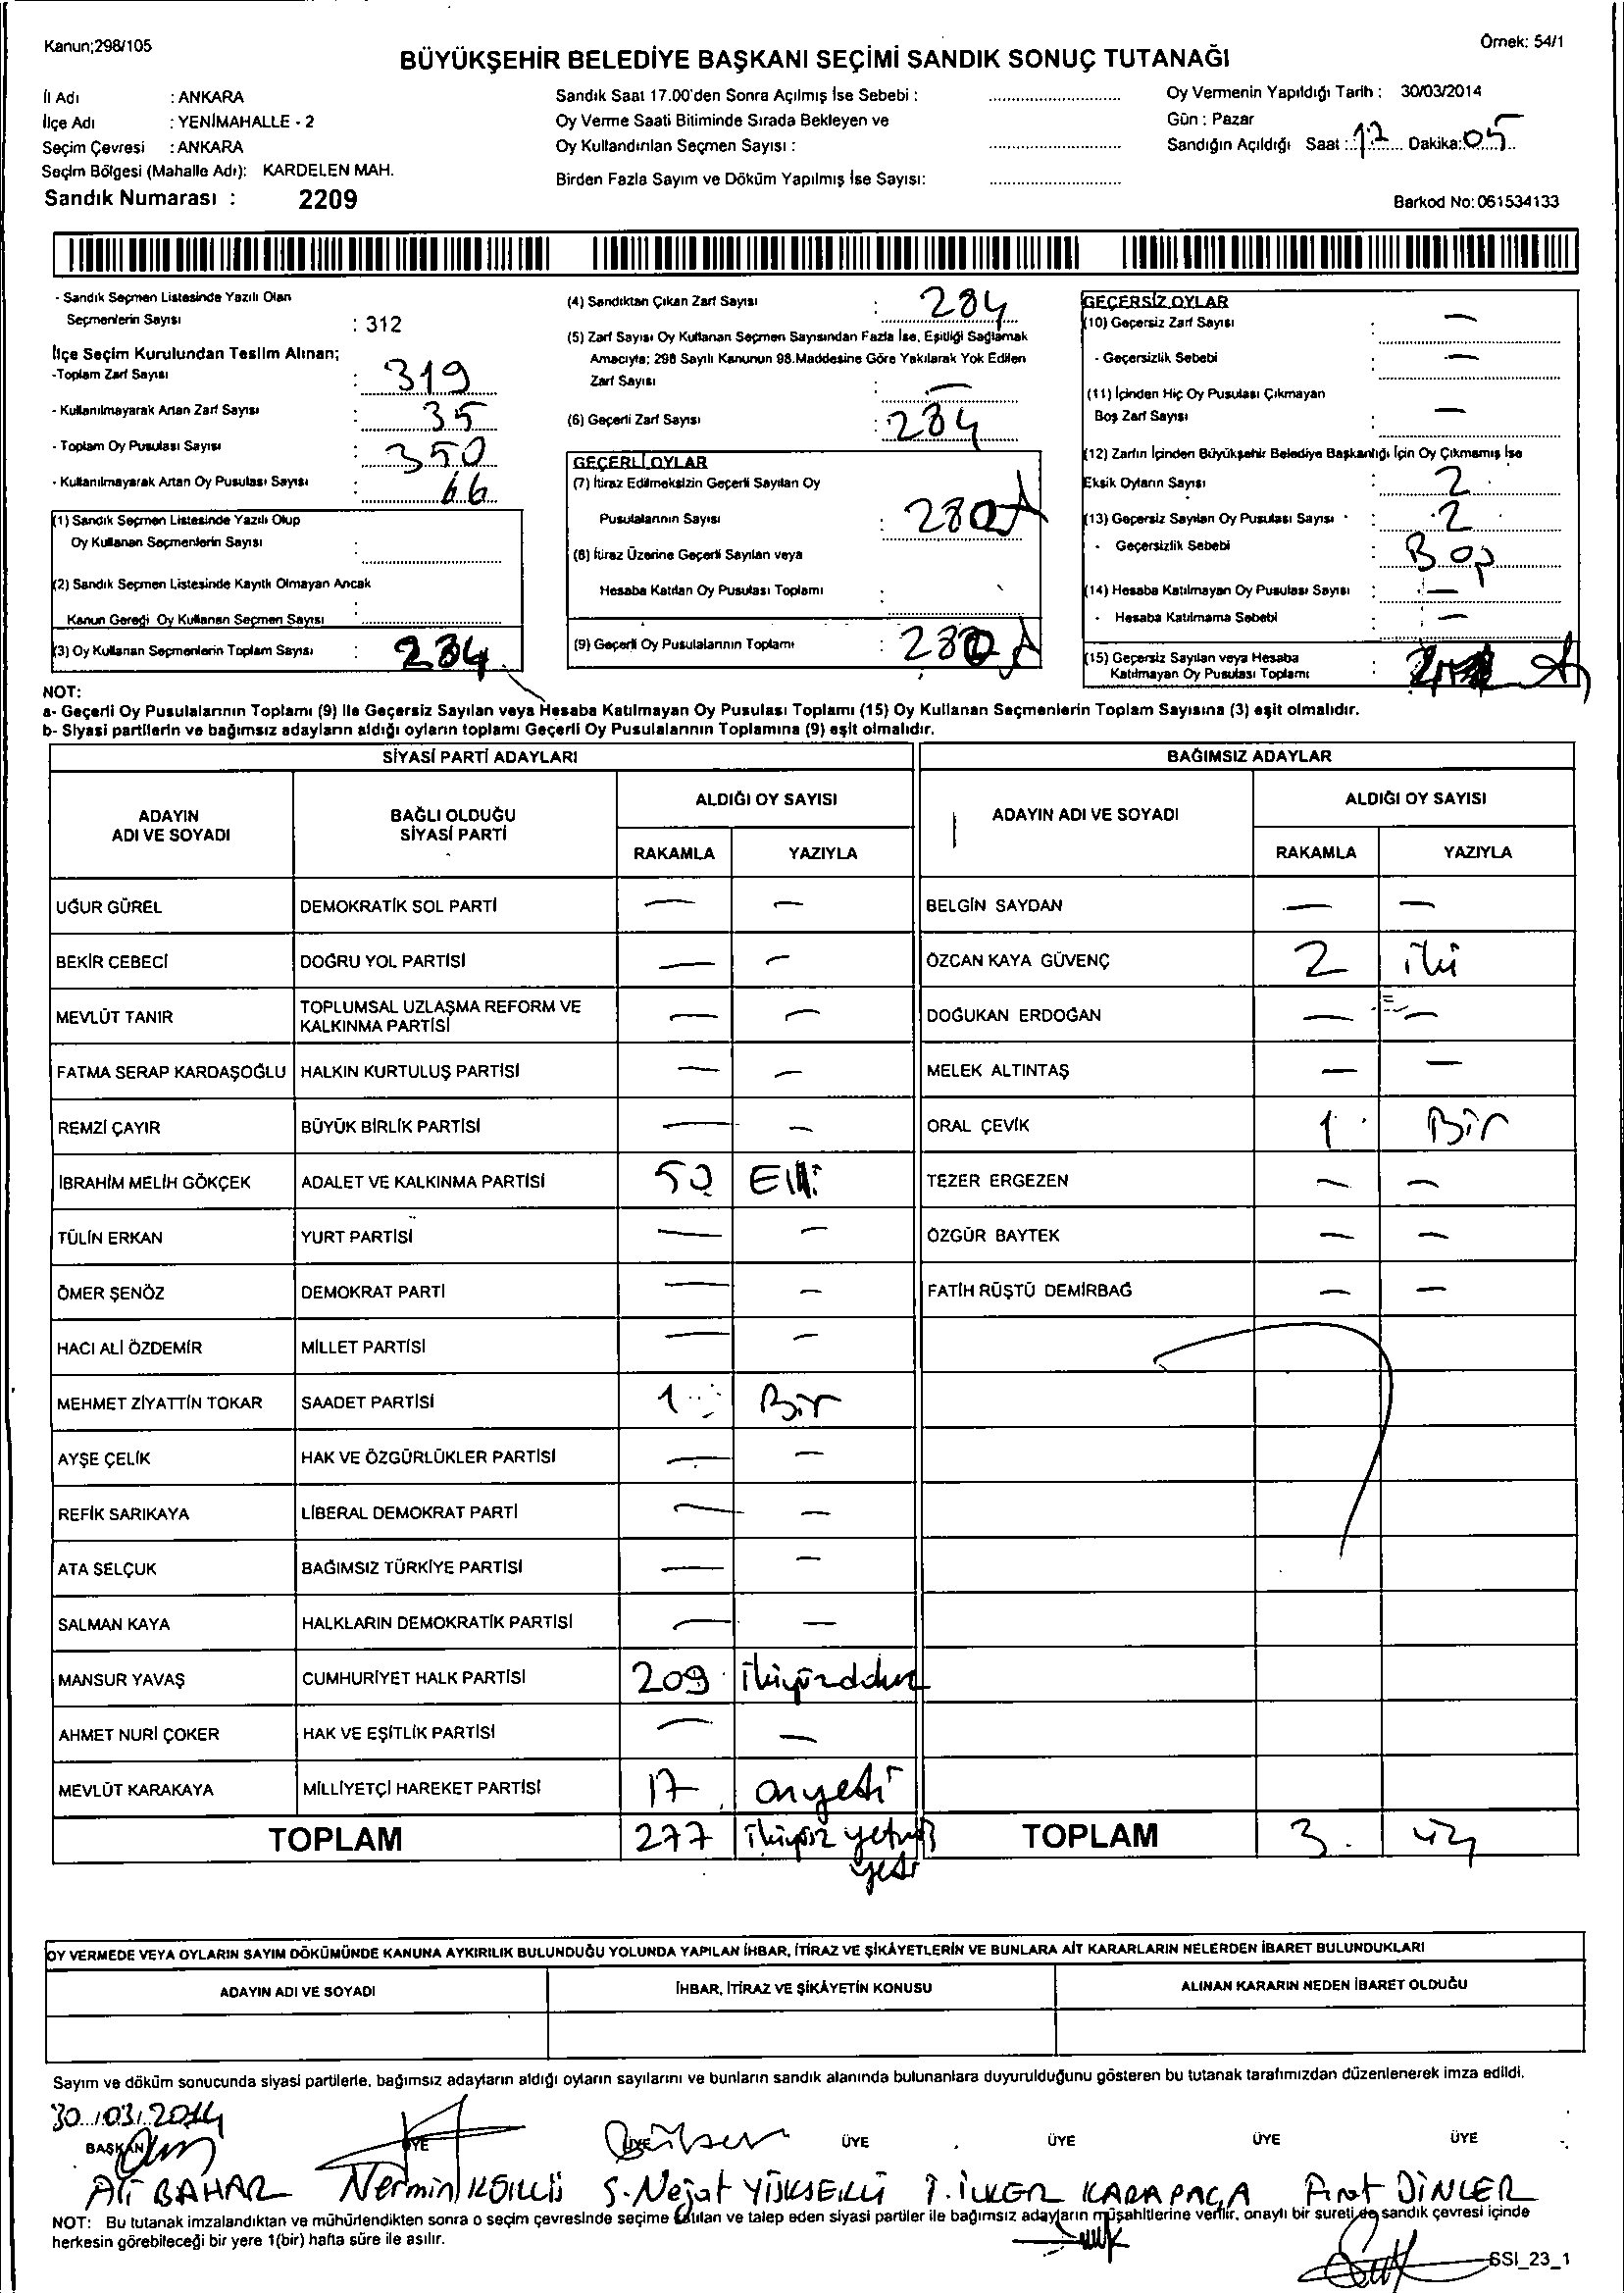 Kanun;298/105
Örnek: 54/1
BÜYÜKŞEHİR BELEDİYE BAŞKANI SEÇİMİ SANDIK SONUÇ TUTANAĞI
İl Adı : ANKARA
İlçe Adı : YENİMAHALLE - 2
Seçim Çevresi : ANKARA
Seçim Bölgesi (Mahalle Adı): KARDELEN MAH.
Sandık Numarası : 2209
Sandık Saat 17.00'den Sonra Açılmış İse Sebebi :
Oy Verme Saati Bitiminde Sırada Bekleyen ve
Oy Kullandırılan Seçmen Sayısı :
Birden Fazla Sayım ve Döküm Yapılmış İse Sayısı:
Oy Vermenin Yapıldığı Tarih : 30/03/2014
Gün : Pazar
Sandığın Açıldığı Saat : 17 Dakika: 05
Barkod No: 061534133
- Sandık Seçmen Listesinde Yazılı Olan
Seçmenlerin Sayısı : 312
İlçe Seçim Kurulundan Teslim Alınan;
-Toplam Zarf Sayısı : 319
- Kullanılmayarak Artan Zarf Sayısı : 35
- Toplam Oy Pusulası Sayısı : 350
- Kullanılmayarak Artan Oy Pusulası Sayısı : 66
(1) Sandık Seçmen Listesinde Yazılı Olup
Oy Kullanan Seçmenlerin Sayısı :
(2) Sandık Seçmen Listesinde Kayıtlı Olmayan Ancak
Kanun Gereği Oy Kullanan Seçmen Sayısı :
(3) Oy Kullanan Seçmenlerin Toplam Sayısı : 284
(4) Sandıktan Çıkan Zarf Sayısı : 284
(5) Zarf Sayısı Oy Kullanan Seçmen Sayısından Fazla İse, Eşitliği Sağlamak
Amacıyla; 298 Sayılı Kanunun 98.Maddesine Göre Yakılarak Yok Edilen
Zarf Sayısı : —
(6) Geçerli Zarf Sayısı : 284
GEÇERLİ OYLAR
(7) İtiraz Edilmeksizin Geçerli Sayılan Oy
Pusulalarının Sayısı : 280
(8) İtiraz Üzerine Geçerli Sayılan veya
Hesaba Katılan Oy Pusulası Toplamı :
(9) Geçerli Oy Pusulalarının Toplamı : 280
GEÇERSİZ OYLAR
(10) Geçersiz Zarf Sayısı : —
- Geçersizlik Sebebi : —
(11) İçinden Hiç Oy Pusulası Çıkmayan
Boş Zarf Sayısı : —
(12) Zarfın İçinden Büyükşehir Belediye Başkanlığı İçin Oy Çıkmamış İse
Eksik Oyların Sayısı : 2
(13) Geçersiz Sayılan Oy Pusulası Sayısı : 2
- Geçersizlik Sebebi :
(14) Hesaba Katılmayan Oy Pusulası Sayısı : —
- Hesaba Katılmama Sebebi : —
(15) Geçersiz Sayılan veya Hesaba
Katılmayan Oy Pusulası Toplamı :
NOT:
a- Geçerli Oy Pusulalarının Toplamı (9) ile Geçersiz Sayılan veya Hesaba Katılmayan Oy Pusulası Toplamı (15) Oy Kullanan Seçmenlerin Toplam Sayısına (3) eşit olmalıdır.
b- Siyasi partilerin ve bağımsız adayların aldığı oyların toplamı Geçerli Oy Pusulalarının Toplamına (9) eşit olmalıdır.
SİYASİ PARTİ ADAYLARI
BAĞIMSIZ ADAYLAR
ADAYIN ADI VE SOYADI
BAĞLI OLDUĞU SİYASİ PARTİ
ALDIĞI OY SAYISI
RAKAMLA YAZIYLA
ADAYIN ADI VE SOYADI
ALDIĞI OY SAYISI
RAKAMLA YAZIYLA
UĞUR GÜREL DEMOKRATİK SOL PARTİ — — BELGİN SAYDAN — —
BEKİR CEBECİ DOĞRU YOL PARTİSİ — — ÖZCAN KAYA GÜVENÇ 2 iki
MEVLÜT TANIR TOPLUMSAL UZLAŞMA REFORM VE KALKINMA PARTİSİ — — DOĞUKAN ERDOĞAN — —
FATMA SERAP KARDAŞOĞLU HALKIN KURTULUŞ PARTİSİ — — MELEK ALTINTAŞ — —
REMZİ ÇAYIR BÜYÜK BİRLİK PARTİSİ — — ORAL ÇEVİK 1 Bir
İBRAHİM MELİH GÖKÇEK ADALET VE KALKINMA PARTİSİ 50 Elli TEZER ERGEZEN — —
TÜLİN ERKAN YURT PARTİSİ — — ÖZGÜR BAYTEK — —
ÖMER ŞENÖZ DEMOKRAT PARTİ — — FATİH RÜŞTÜ DEMİRBAĞ — —
HACI ALİ ÖZDEMİR MİLLET PARTİSİ — —
MEHMET ZİYATTİN TOKAR SAADET PARTİSİ 1 Bir
AYŞE ÇELİK HAK VE ÖZGÜRLÜKLER PARTİSİ — —
REFİK SARIKAYA LİBERAL DEMOKRAT PARTİ — —
ATA SELÇUK BAĞIMSIZ TÜRKİYE PARTİSİ — —
SALMAN KAYA HALKLARIN DEMOKRATİK PARTİSİ — —
MANSUR YAVAŞ CUMHURİYET HALK PARTİSİ 209
AHMET NURİ ÇOKER HAK VE EŞİTLİK PARTİSİ — —
MEVLÜT KARAKAYA MİLLİYETÇİ HAREKET PARTİSİ 17 onyedi
TOPLAM 277 TOPLAM 3
OY VERMEDE VEYA OYLARIN SAYIM DÖKÜMÜNDE KANUNA AYKIRILIK BULUNDUĞU YOLUNDA YAPILAN İHBAR, İTİRAZ VE ŞİKÂYETLERİN VE BUNLARA AİT KARARLARIN NELERDEN İBARET BULUNDUKLARI
ADAYIN ADI VE SOYADI İHBAR, İTİRAZ VE ŞİKÂYETİN KONUSU ALINAN KARARIN NEDEN İBARET OLDUĞU
Sayım ve döküm sonucunda siyasi partilerle, bağımsız adayların aldığı oyların sayılarını ve bunların sandık alanında bulunanlara duyurulduğunu gösteren bu tutanak tarafımızdan düzenlenerek imza edildi.
30/03/2014
BAŞKAN ÜYE ÜYE ÜYE ÜYE ÜYE ÜYE
Ali BAHAR Nermin S. Nejat İLKER KARAPAÇA Fırat DİNLER
NOT: Bu tutanak imzalandıktan ve mühürlendikten sonra o seçim çevresinde seçime katılan ve talep eden siyasi partiler ile bağımsız adayların müşahitlerine verilir, onaylı bir sureti de sandık çevresi içinde
herkesin görebileceği bir yere 1(bir) hafta süre ile asılır.
SSI_23_1